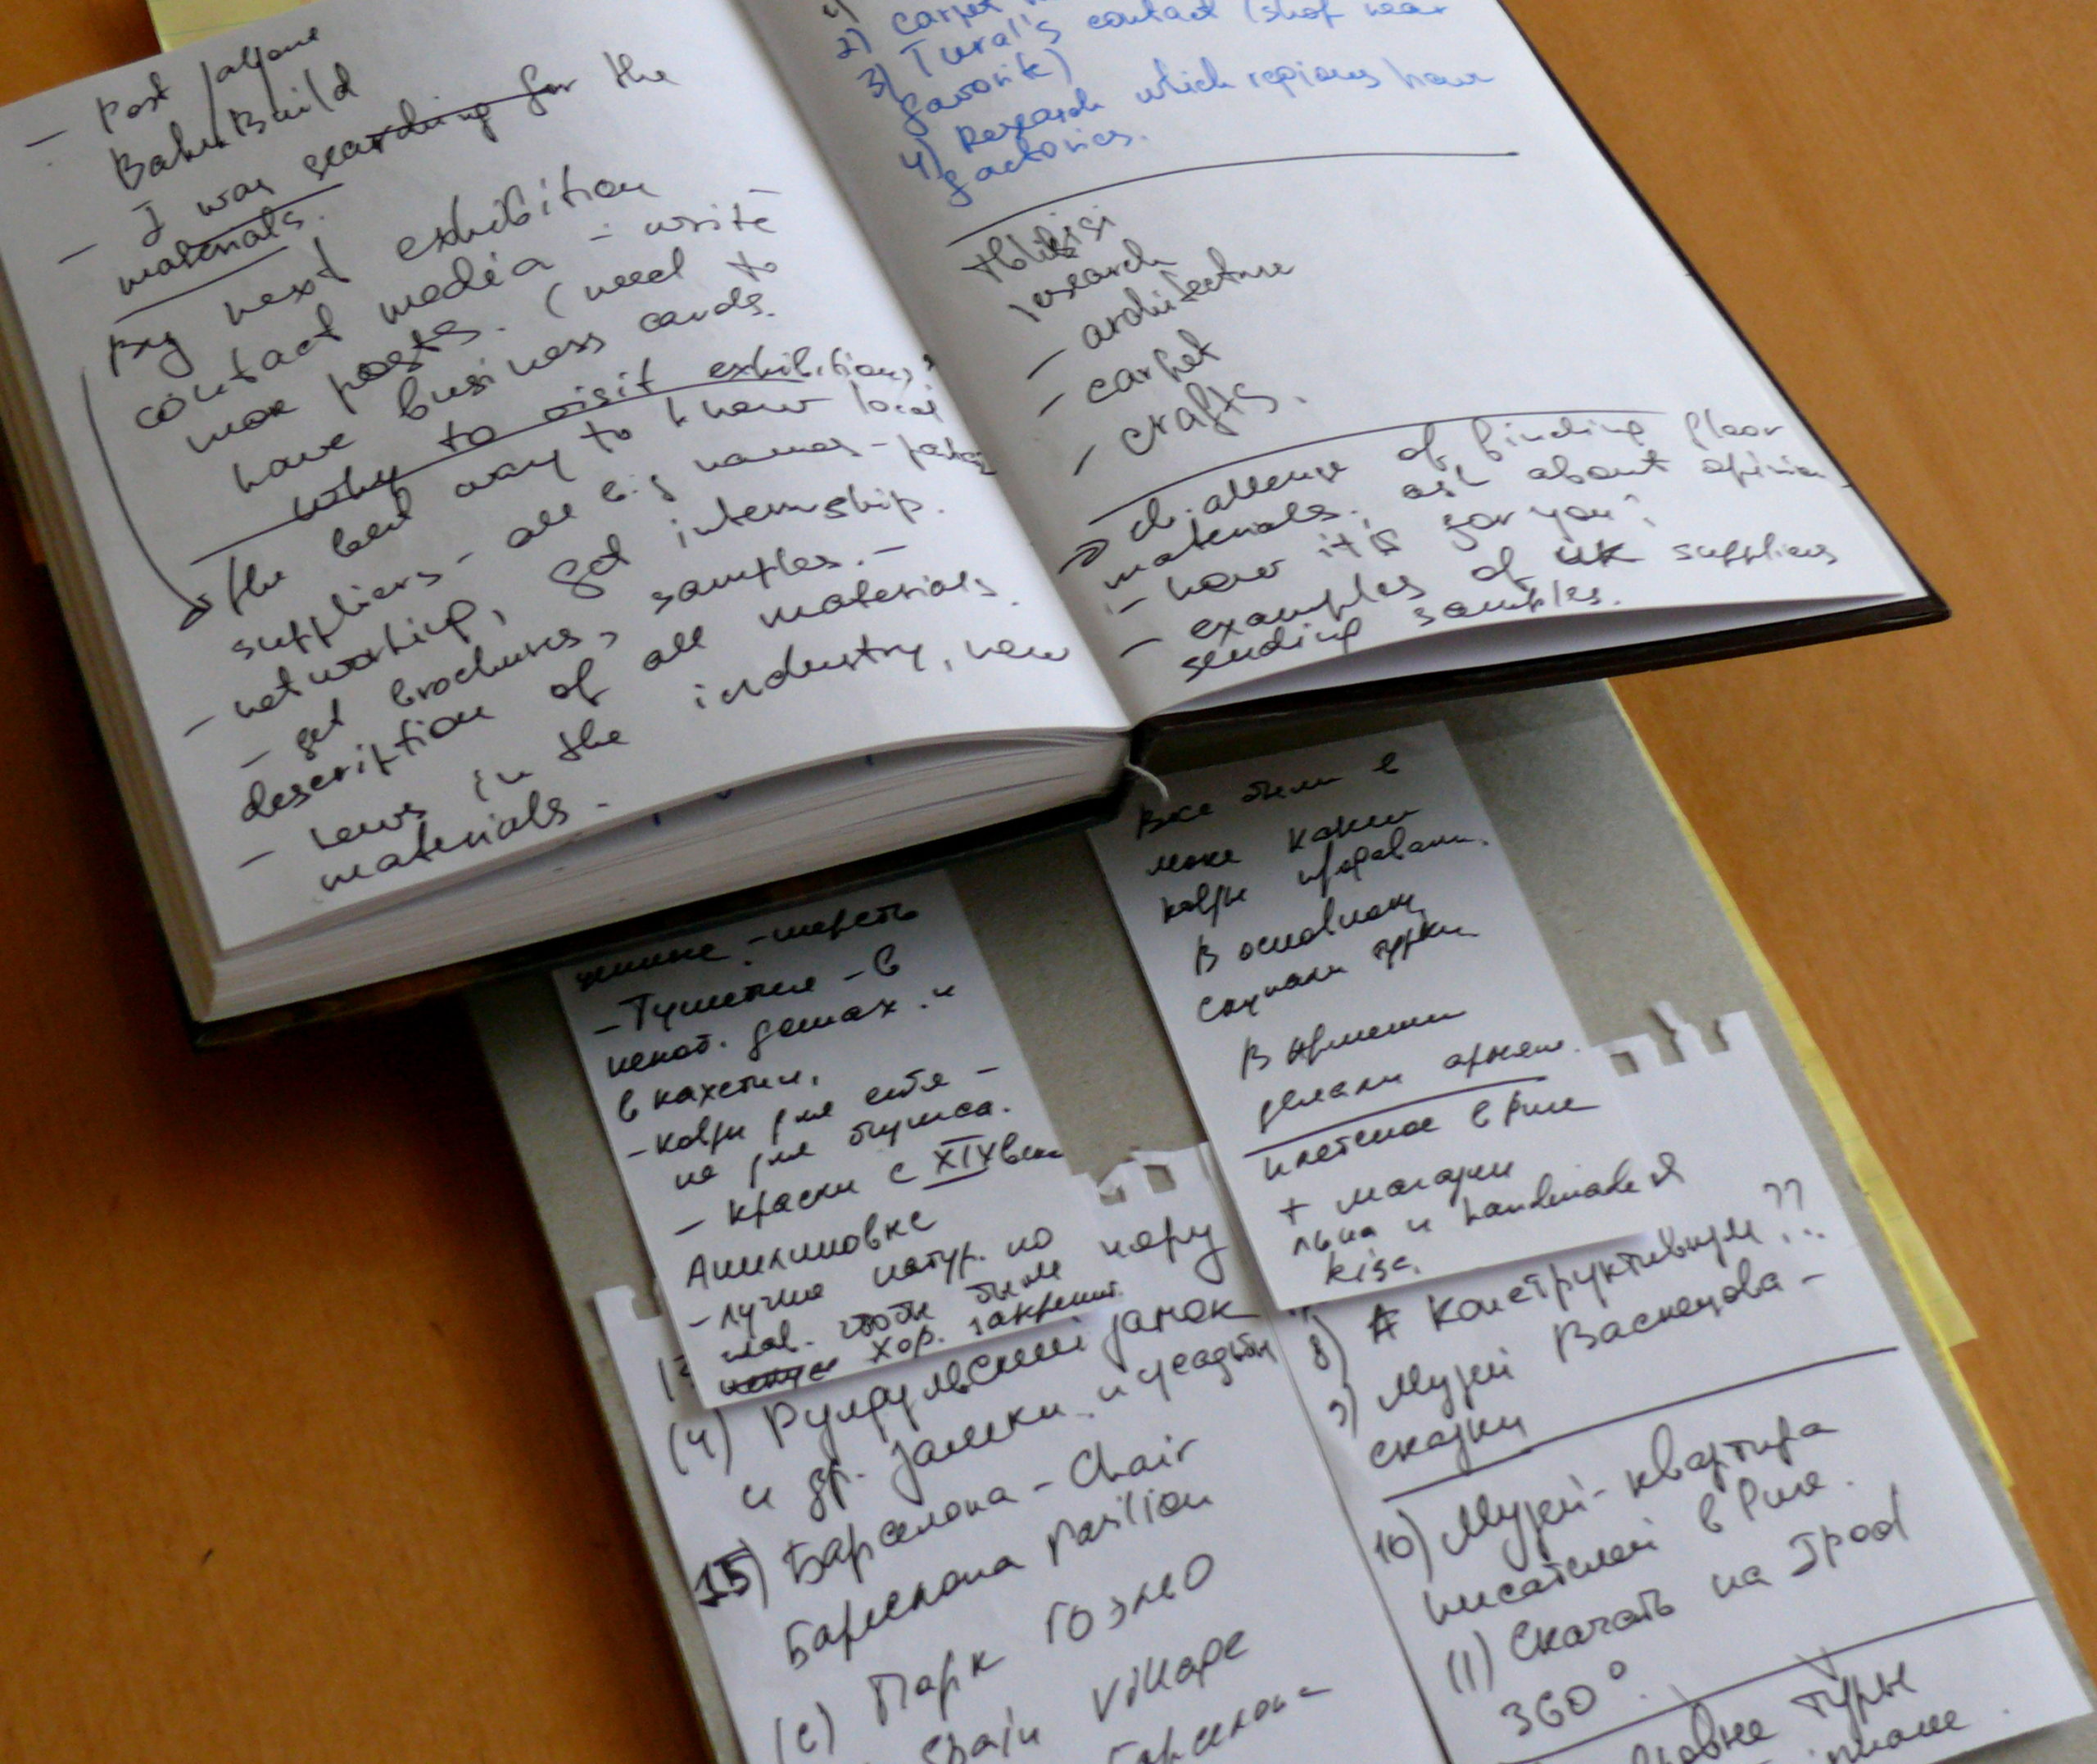 - Post
Baku Build
- I was searching for the
materials.
next exhibition
contact media - write
more posts. (need to
have business cards.
Why to visit exhibitions?
the best way to know local
suppliers - all big names -
networking, get internship.
- get brochures, samples. -
description of all materials.
- news in the industry, new
materials.
2) carpet
3) Tural's contact (shop near
favorite)
4) Research which regions have
factories.
tbilisi
research
- architecture
- carpet
- crafts.
challenge of finding floor
materials. ask about opinion
- how it is for you?
- examples of UK suppliers
sending samples.
- шерсть
- Тушетия - в
некот. домах и
в Кахетии.
- ковры для себя -
не для бизнеса.
- краски с XIX века
Анилиновые
- лучше натур. но
глав. чтобы были
хор. закреп.
Все были в
какие
ковры продавали.
В основном
скупали турки
В Армении
делали армяне.
плетение в Риге
+ магазин
льна и handmade я
нору
(4) Рундульский замок
и др. замки и усадьбы
15) Барселона - Chair
Барселона Pavilion
(c) Парк Гоэлю
Spain Village
Барселона
8) А Конструктивизм??
9) Музей Васнецова -
сказки
10) Музей-квартира
писателей в Риге.
(11) Скачать на Ipod
360°.
туры